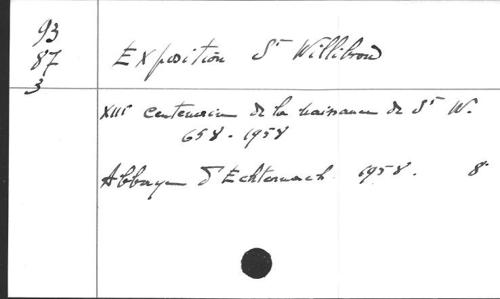 93
87
3
Exposition St Willibrord
XIIIe centenaire de la naissance de St W.
658 - 1958
Abbaye d'Echternach 1958. 8°